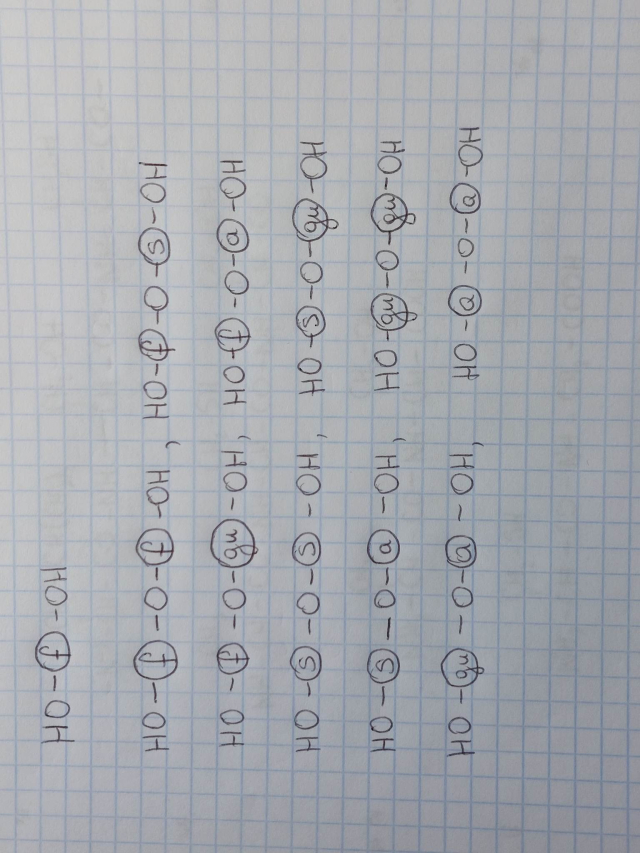 HO-(f)-OH
HO-(f)-O-(f)-OH, HO-(f)-O-(s)-OH
HO-(f)-O-(gu)-OH, HO-(f)-O-(a)-OH
HO-(s)-O-(s)-OH, HO-(s)-O-(gu)-OH
HO-(s)-O-(a)-OH, HO-(gu)-O-(gu)-OH
HO-(gu)-O-(a)-OH, HO-(a)-O-(a)-OH